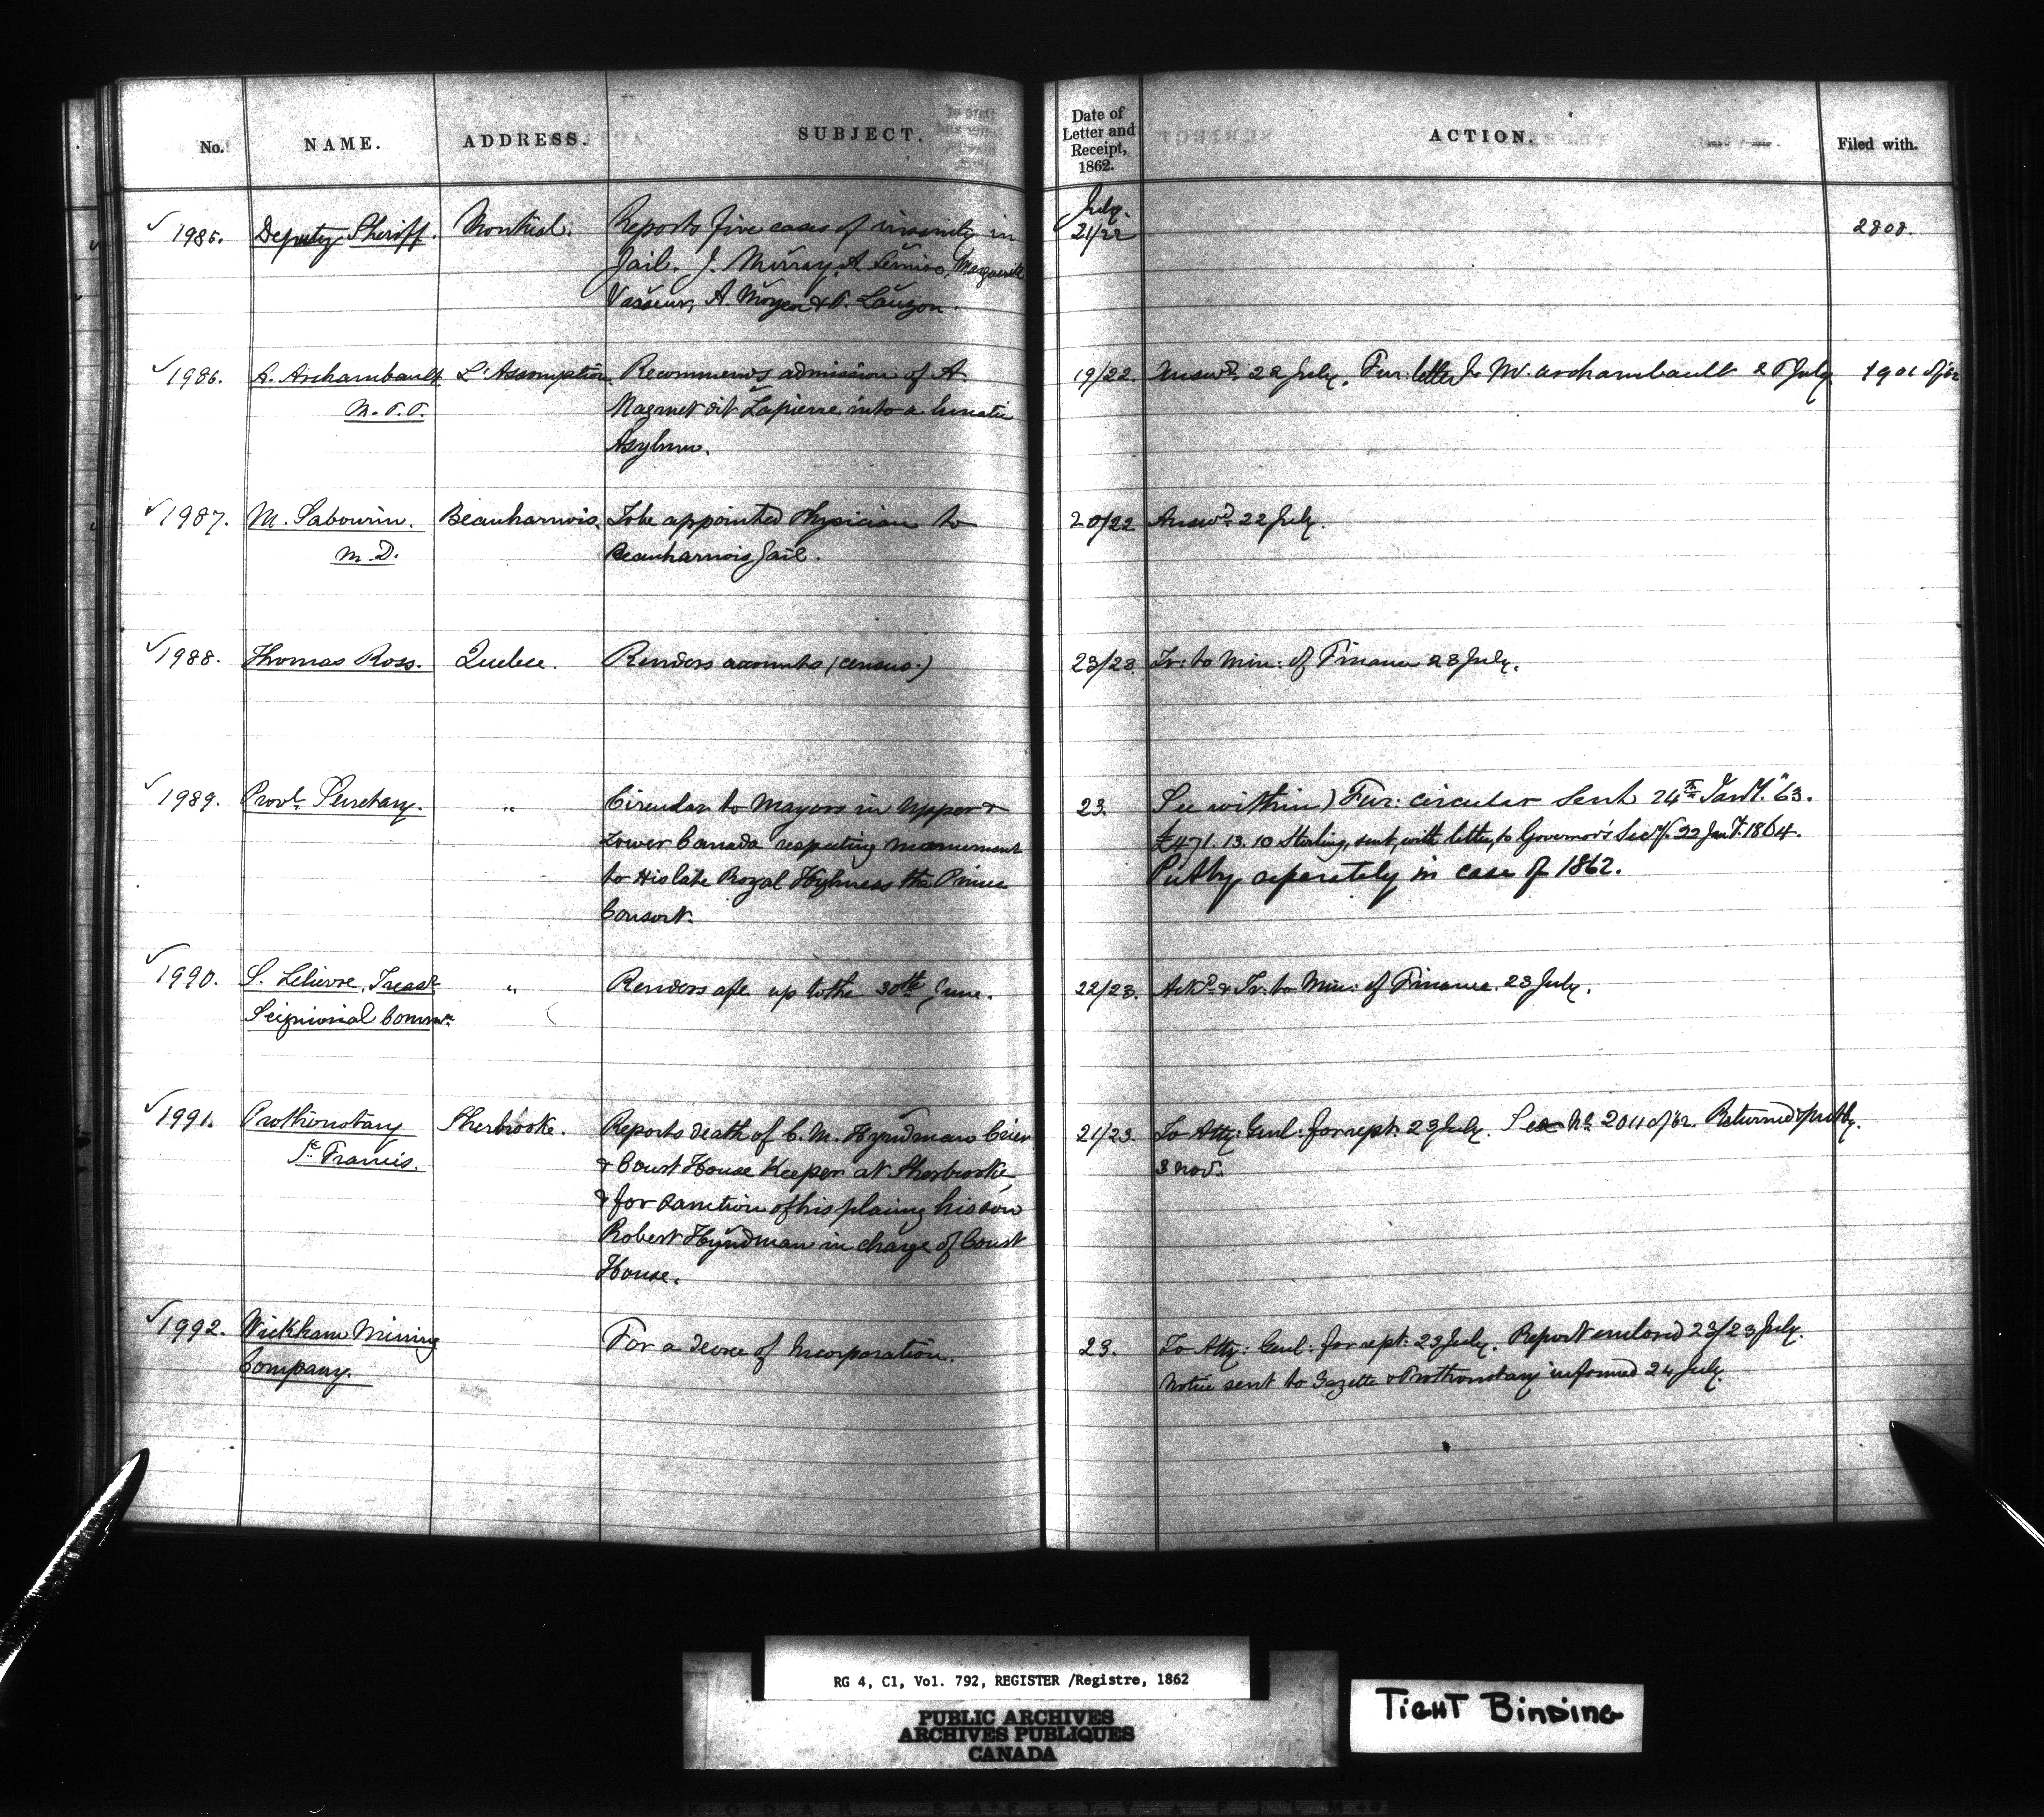 No. NAME. ADDRESS. SUBJECT. Date of Letter and Receipt, 1862. ACTION. Filed with.
1985. Deputy Sheriff. Montreal. Reports five cases of insanity in July. 21/22 2808.
Jail. J. Murray, A. Marguerite
A. & P. Lauzon.
1986. A. Archambault L'Assomption. Recommends admission of A. 19/22. Answd. 22 July. Fur: letter to M. Archambault 28 July. 1901 of /62
M.P.P. dit Lapierre into a lunatic
Asylum.
1987. M. Sabourin. Beauharnois. To be appointed Physician to 20/22 Answd. 22 July.
M.D. Beauharnois Jail.
1988. Thomas Ross. Quebec. Renders accounts (census.) 23/23. Tr: to Min: of Finance 23 July.
1989. Provl. Secretary. " Circular to Mayors in Upper & 23. See within) Fur: circular sent 24th Jany. "63.
Lower Canada respecting monument £471. 13. 10 Sterling, sent, with letter, to Governor's Secy. 22 Jany. 1864.
to His late Royal Highness the Prince Put by seperately in case of 1862.
Consort.
1990. S. Lelievre, Treasr. " Renders a/c up to the 30th June. 22/23. Ackd. & Tr: to Min: of Finance. 23 July.
Seigniorial Commn.
1991. Prothonotary Sherbrooke. Reports death of C. M. Hyndman Crier 21/23. To Atty: Genl: for rept: 23 July. See No. 2011 of /62. Returned & put by.
St. Francis. & Court House Keeper at Sherbrooke, 3 Nov.
& for sanction of his placing his son
Robert Hyndman in charge of Court
House.
1992. Wickham Mining For a decree of Incorporation. 23. To Atty: Genl: for rept: 23 July. Report enclosed 23/23 July.
Company. Notice sent to Gazette & Prothonotary informed 24 July.
RG 4, C1, Vol. 792, REGISTER /Registre, 1862
PUBLIC ARCHIVES
ARCHIVES PUBLIQUES
CANADA
TIGHT BINDING